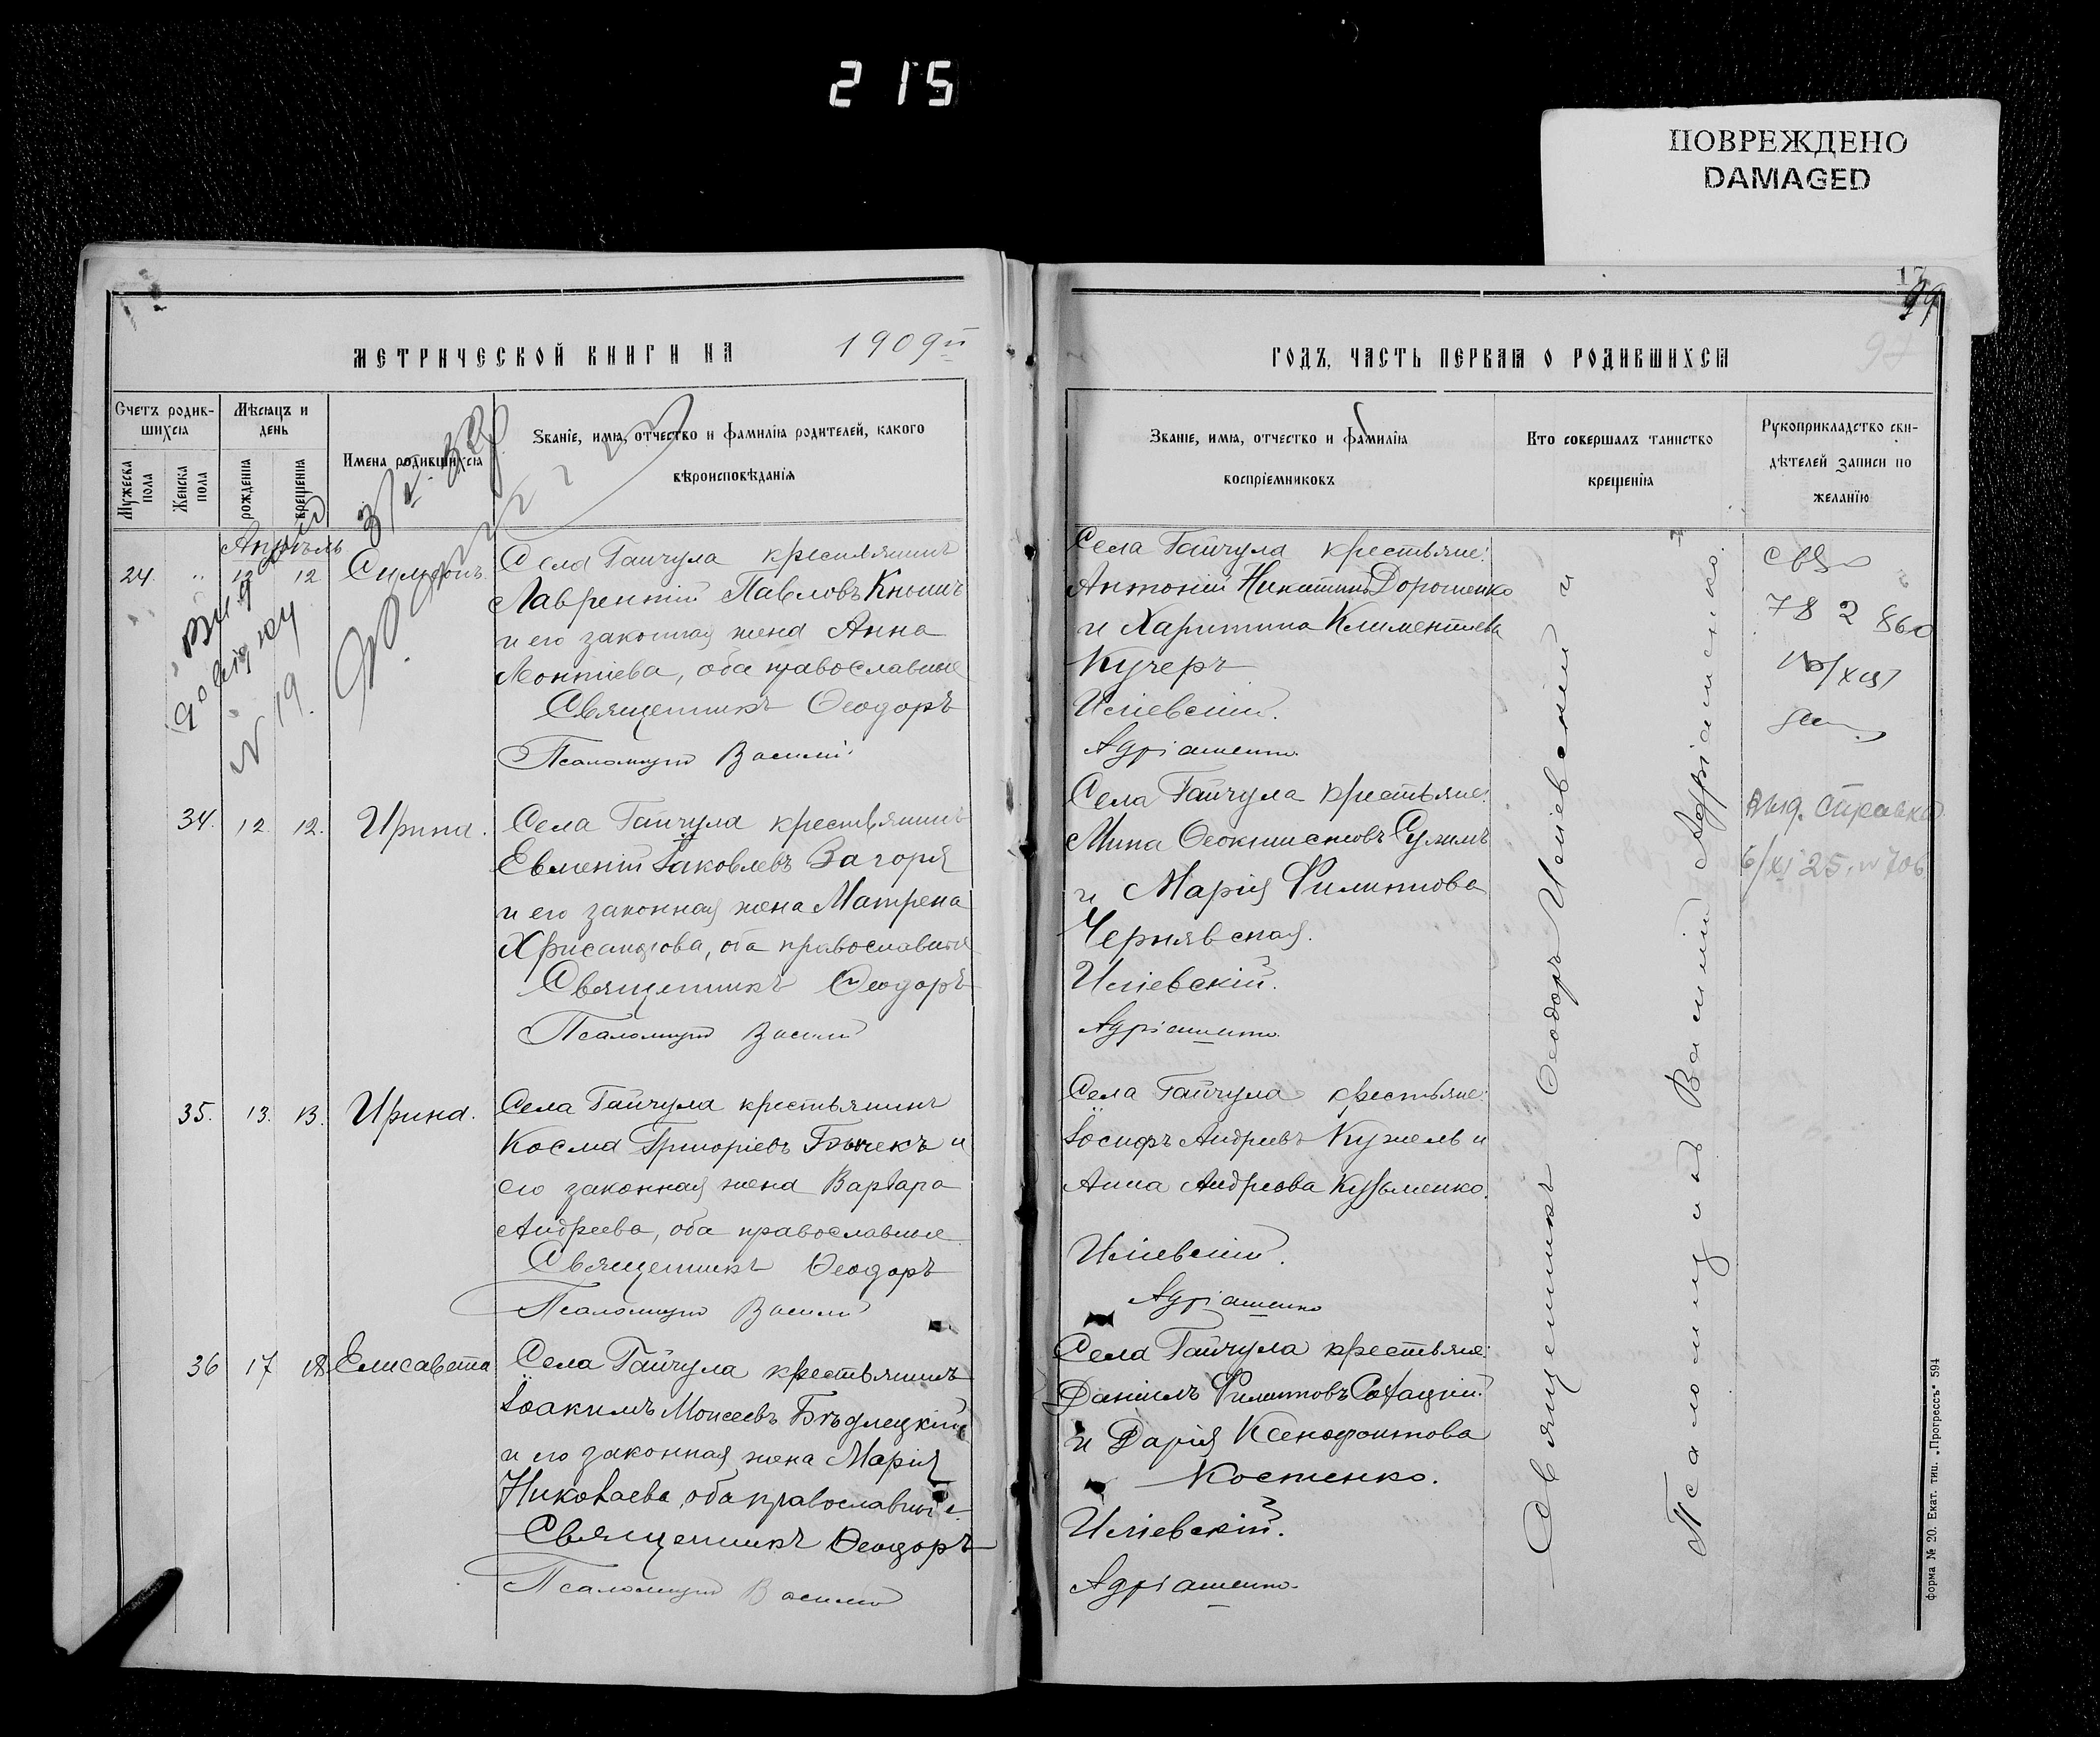 215
ПОВРЕЖДЕНО
DAMAGED
МЕТРИЧЕСКОЙ КНИГИ НА 1909й
Счетъ родившихся
Мужеска пола
Женска пола
Мѣсяцъ и день
рожденія
крещенія
Имена родившихся
Званіе, имя, отчество и фамилія родителей, какого
вѣроисповѣданія
Апрѣль
24. " 12 12 Симеонъ.
Села Гайчула крестьянинъ
Лаврентій Павловъ Кнышъ
и его законная жена Анна
Леонтіева, оба православные
Священникъ Ѳеодоръ
Псаломщикъ Василій
довідку
N 19
34. 12. 12. Ирина.
Села Гайчула крестьянинъ
Евменій Іаковлевъ Загоря
и его законная жена Матрена
Хрисанфова, оба православные
Священникъ Ѳеодоръ
Псаломщикъ Василій
35. 13. 13. Ирина.
Села Гайчула крестьянинъ
Косма Григоріевъ Бычекъ и
его законная жена Варвара
Андреева, оба православные
Священникъ Ѳеодоръ
Псаломщикъ Василій
36 17 18 Елисавета
Села Гайчула крестьянинъ
Іоакимъ Моисеевъ Бѣдлецкій
и его законная жена Марія
Николаева, оба православные.
Священникъ Ѳеодоръ
Псаломщикъ Василій
ГОДЪ, ЧАСТЬ ПЕРВАЯ О РОДИВШИХСЯ
Званіе, имя, отчество и фамилія
воспріемниковъ
Кто совершалъ таинство
крещенія
Рукоприкладство сви-
дѣтелей записи по
желанію
Села Гайчула крестьяне:
Антоній Никитинъ Дорошенко
и Харитина Климентіева
Кучеръ
Иліевскій.
Адріашенко.
Села Гайчула крестьяне:
Мина Ѳеоктистовъ Сулимъ
и Марія Филиппова
Чернявская.
Иліевскій.
Адріашенко.
Села Гайчула крестьяне:
Іосифъ Андреевъ Кужель и
Анна Андреева Кузьменко.
Иліевскій.
Адріашенко
Села Гайчула крестьяне:
Даніилъ Филипповъ
и Дарія Ксенофонтова
Костенко.
Иліевскій.
Адріашенко.
Священникъ Ѳеодоръ Иліевскій и
Псаломщикъ Василій Адріашенко.
782860
Выд. справка
6/XI 25. N 706
Форма № 20. Екат. тип. „Прогрессъ" 594